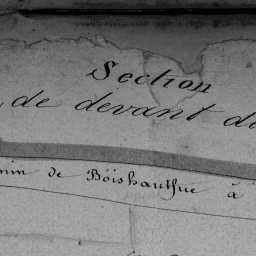 Section
de devant d
min de Boishauthue à